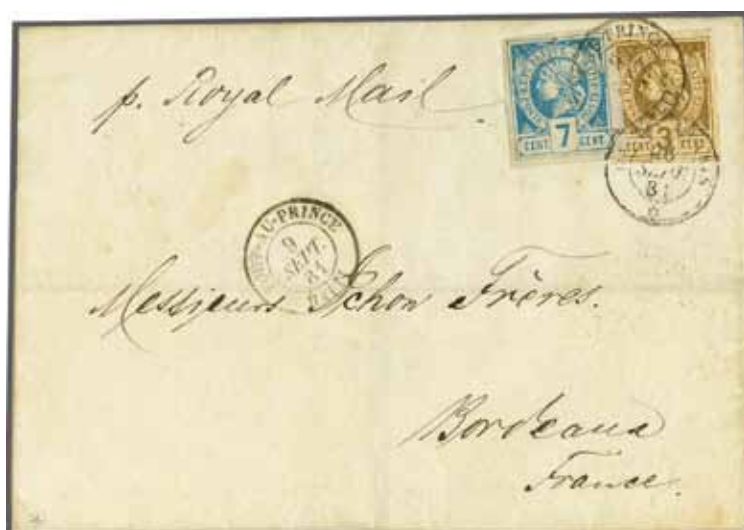 p. Royal Mail
7
CENT CENT
3
CENT CENT
PRINCE
SEPT.
81
PORT-AU-PRINCE
9
SEPT.
81
HAITI
Messieurs Schon Frères.
Bordeaux
France.